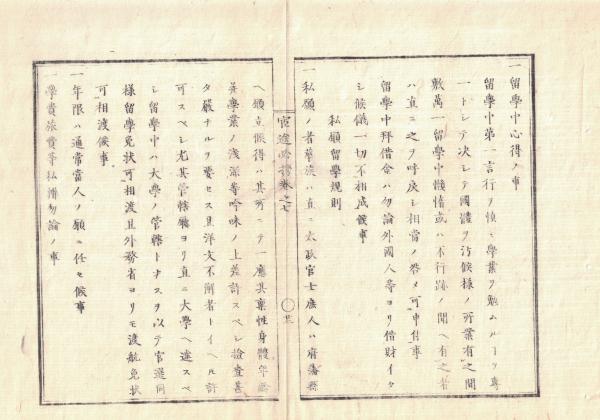 一留學中心得ノ事
留學中第一言行ヲ愼ミ學業ヲ勉ムルコヲ專
一トシテ决シテ國體ヲ汚候様ノ所業有之間
敷萬一留學中懶惰或ハ不行跡ノ聞ヘ有之者
ハ直ニ之ヲ呼戻シ相當ノ咎メ可申付事
留學中拜借金ハ勿論外國人等ヨリ借財イタ
シ候儀一切不相成候事
私願留學規則
一私願ノ者華族ハ直ニ太政官士庶人ハ府藩縣
官途必携卷之七
ヘ願立候得ハ其所ニテ一應其稟性身體年齡
并學業ノ淺深等吟味ノ上差許スヘシ檢査甚
タ嚴ナルヲ要セス且洋文不通者トイヘル許
可スヘシ尤其管轄廳ヨリ直ニ大學ヘ達スヘ
シ留學中ハ大學ノ管轄トナスヲ以テ官選同
様留學免狀可相渡且外務省ヨリモ渡航免狀
可相渡候事
一年限ハ通常當人ノ願ニ任セ候事
一學費旅費等私辨勿論ノ事